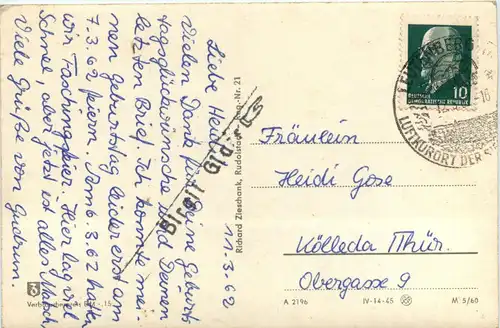 Liebe Heidi! 11.3.62
Vielen Dank für Deine Geburts
tagsglückwünsche und Deinen
letzten Brief. Ich konnte mei-
nen Geburtstag leider erst am
7.3.62 feiern. Am 6.3.62 hatten
wir Faschingsfeier. Hier lag viel
Schnee, aber jetzt ist alles Masch
Viele Grüße von Gudrun.
Birgit
Richard Zieschank, Rudolstadt
Nr. 21
DEUTSCHE
DEMOKRATISCHE REPUBLIK
10
LUFTKURORT DER
Fräulein
Heidi Gose
Kölleda Thür.
Obergasse 9
A 2196 IV-14-45 M 5/60